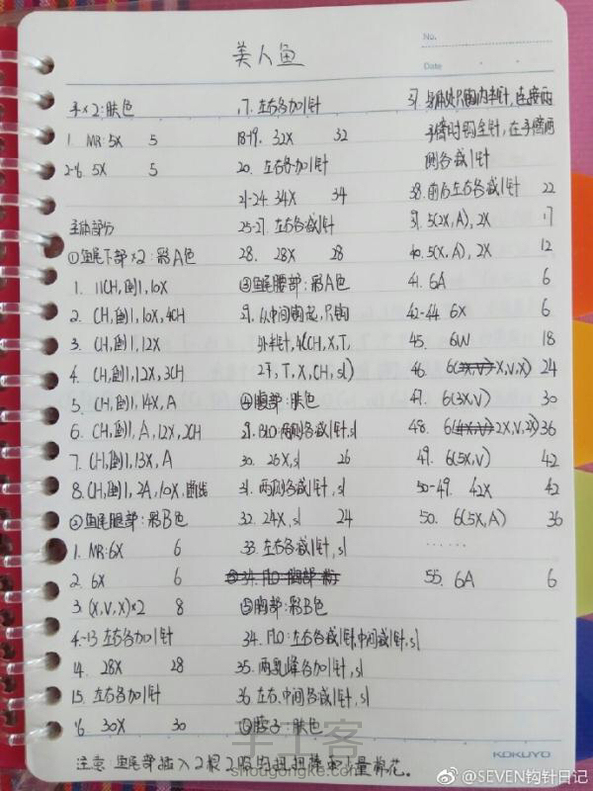 美人鱼
No.
Date
手×2:肤色
1. MR:5X 5
2-6. 5X 5
主体部分
①鱼尾下部×2:彩A色
1. 11CH,倒1,10X
2. CH,倒1,10X,4CH
3. CH,倒1,12X
4. CH,倒1,12X,3CH
5. CH,倒1,14X,A
6. CH,倒1,A,12X,2CH
7. CH,倒1,13X,A
8. CH,倒1,2A,10X,断线
②鱼尾腿部:彩B色
1. MR:6X 6
2. 6X 6
3. (X,V,X)×2 8
4-13 左右各加1针
14. 28X 28
15. 左右各加1针
16. 30X 30
17. 左右各加1针
18-19. 32X 32
20. 左右各加1针
21-24. 34X 34
25-27. 左右各减1针
28. 28X 28
③鱼尾腰部:彩A色
29. 从中间钩花,只钩
外半针,4(CH,X,T,
2F,T,X,CH,sl)
④腹部:肤色
29. BLO:两侧各减1针,sl
30. 26X,sl 26
31. 两侧各减1针,sl
32. 24X,sl 24
33. 左右各减1针,sl
⑤胸部:彩B色
34. FLO:左右各减1针,中间减1针,sl
35. 两乳峰各加1针,sl
36. 左右,中间各减1针,sl
⑥脖子:肤色
37. 身体处只钩内半针,连接两
手臂时钩全针,在手臂两
侧各减1针
38. 前后左右各减1针 22
39. 5(2X,A),2X 17
40. 5(X,A),2X 12
41. 6A 6
42-44. 6X 6
45. 6W 18
46. 6(X,V,X) 24
47. 6(3X,V) 30
48. 6(2X,V,2X) 36
49. 6(5X,V) 42
50-49. 42X 42
50. 6(5X,A) 36
……
55. 6A 6
注意:鱼尾部插入2根2股的扭扭棒和少量棉花。
手工客
shougongke.com
KOKUYO
@SEVEN钩针日记